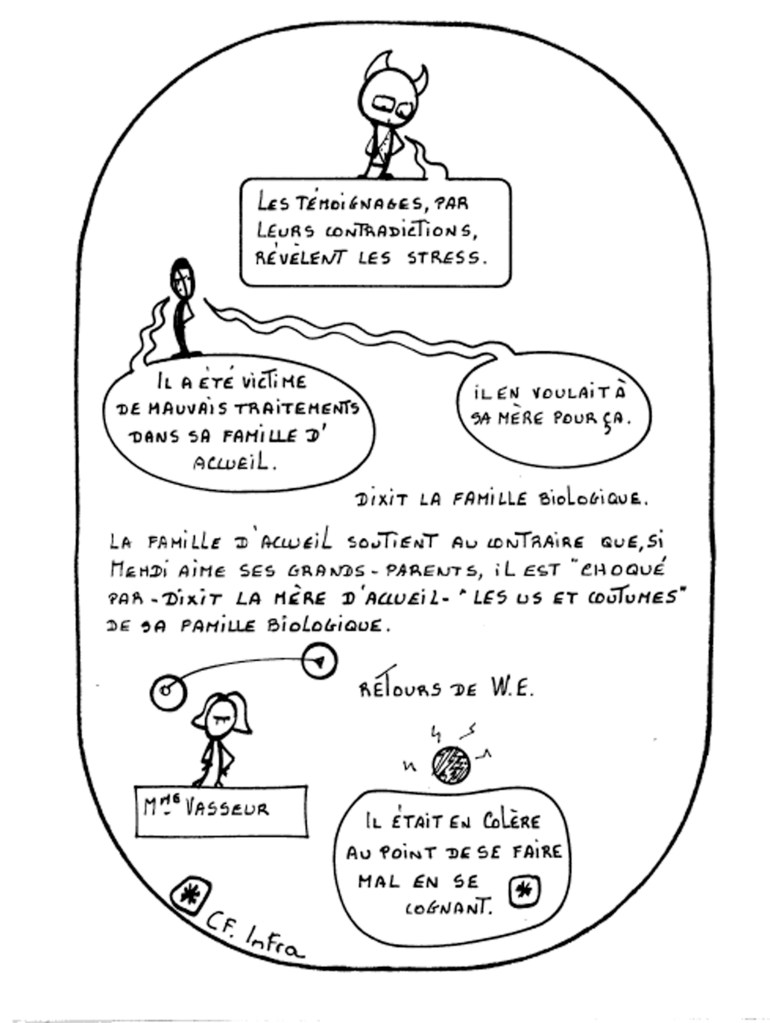 LES TÉMOIGNAGES, PAR
LEURS CONTRADICTIONS,
RÉVÈLENT LES STRESS.
IL A ÉTÉ VICTIME
DE MAUVAIS TRAITEMENTS
DANS SA FAMILLE D'
ACCUEIL.
IL EN VOULAIT À
SA MÈRE POUR ÇA.
DIXIT LA FAMILLE BIOLOGIQUE.
LA FAMILLE D'ACCUEIL SOUTIENT AU CONTRAIRE QUE, SI
MEHDI AIME SES GRANDS-PARENTS, IL EST "CHOQUÉ
PAR - DIXIT LA MÈRE D'ACCUEIL - "LES US ET COUTUMES"
DE SA FAMILLE BIOLOGIQUE.
RETOURS DE W.E.
MME VASSEUR
IL ÉTAIT EN COLÈRE
AU POINT DE SE FAIRE
MAL EN SE
COGNANT. *
* CF. InFra